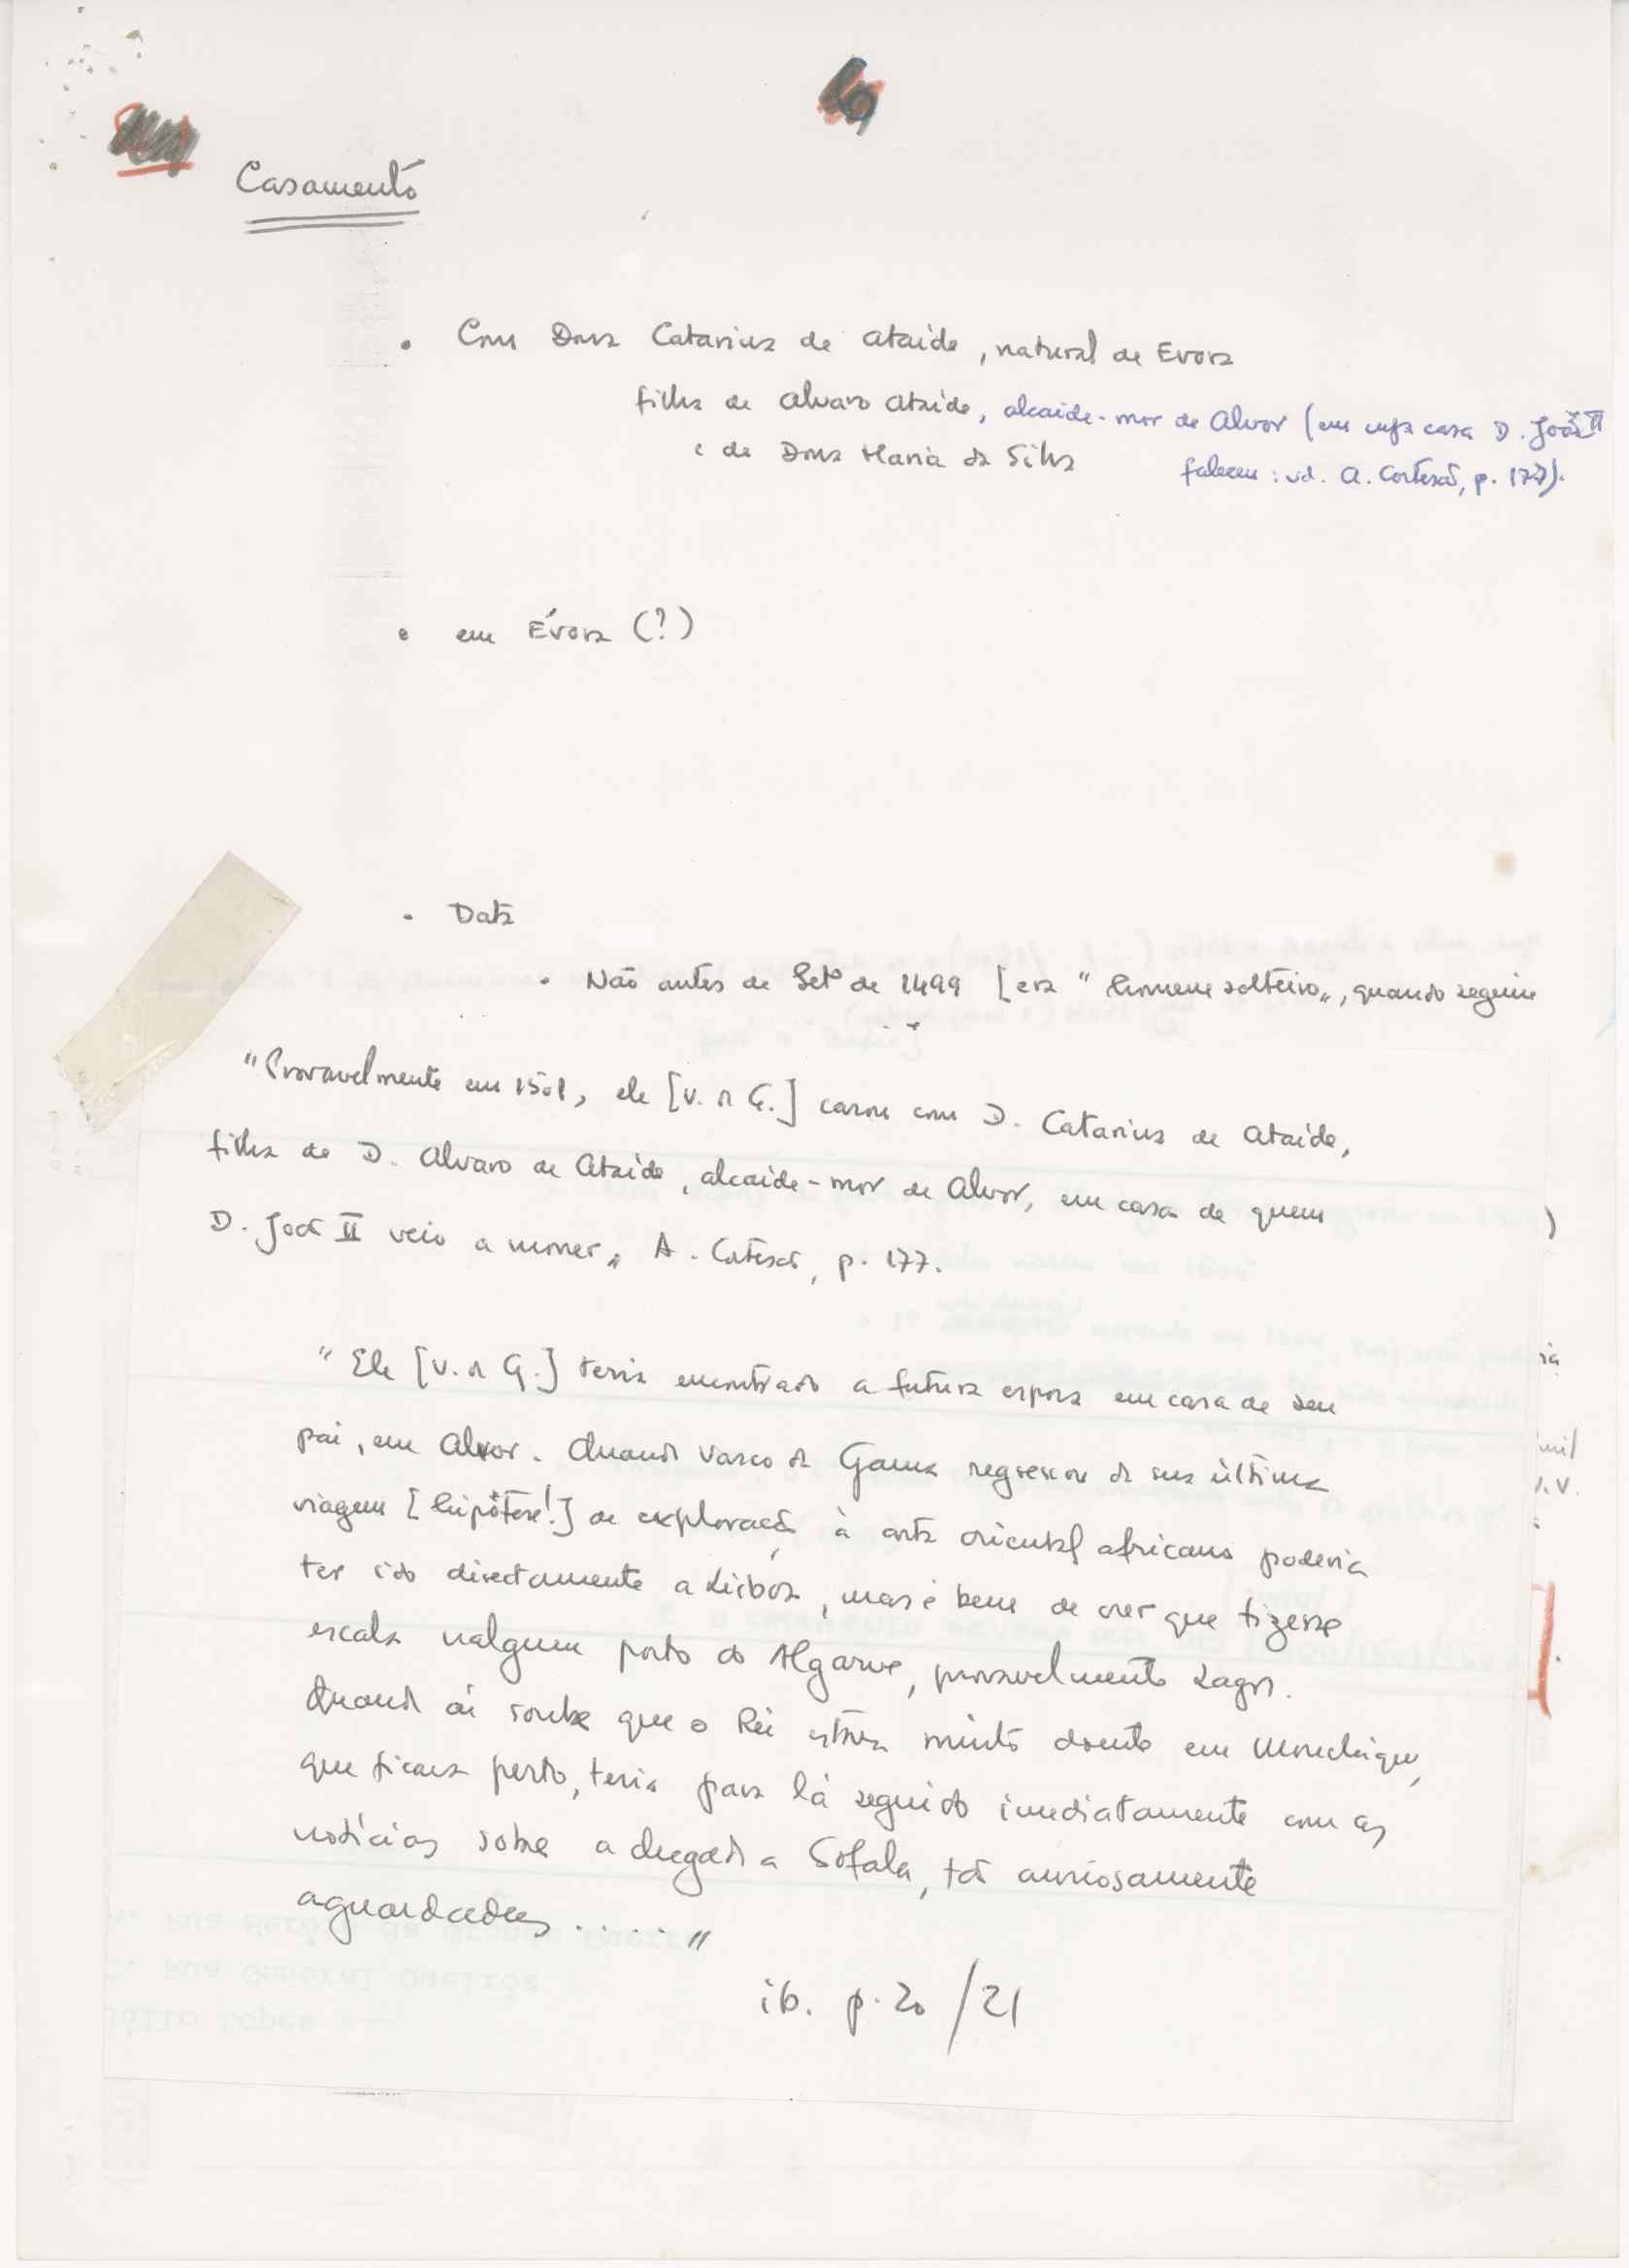 Casamento
• Com Dona Catarina de Ataíde, natural de Evora
filha de Alvaro Ataíde, alcaide-mor de Alvor (em cuja casa D. João II
e de Dona Maria da Silva faleceu: vd. A. Cortesão, p. 177).
• em Évora (?)
• Data
• Não antes de Setº de 1499 [era "homem solteiro", quando seguiu
"Provavelmente em 1501, ele [V. da G.] casou com D. Catarina de Ataíde,
filha de D. Alvaro de Ataíde, alcaide-mor de Alvor, em casa de quem
D. João II veio a morrer" A. Cortesão, p. 177.
"Ele [V. da G.] teria encontrado a futura esposa em casa de seu
pai, em Alvor. Quando Vasco da Gama regressou da sua última
viagem [hipótese!] de exploração à costa oriental africana poderia
ter ido directamente a Lisboa, mas é bem de crer que fizesse
escala nalgum porto do Algarve, provavelmente Lagos.
Quando aí soube que o Rei estava muito doente em Monchique,
que ficava perto, teria para lá seguido imediatamente com as
notícias sobre a chegada a Sofala, tão ansiosamente
aguardadas ....."
ib. p. 20/21